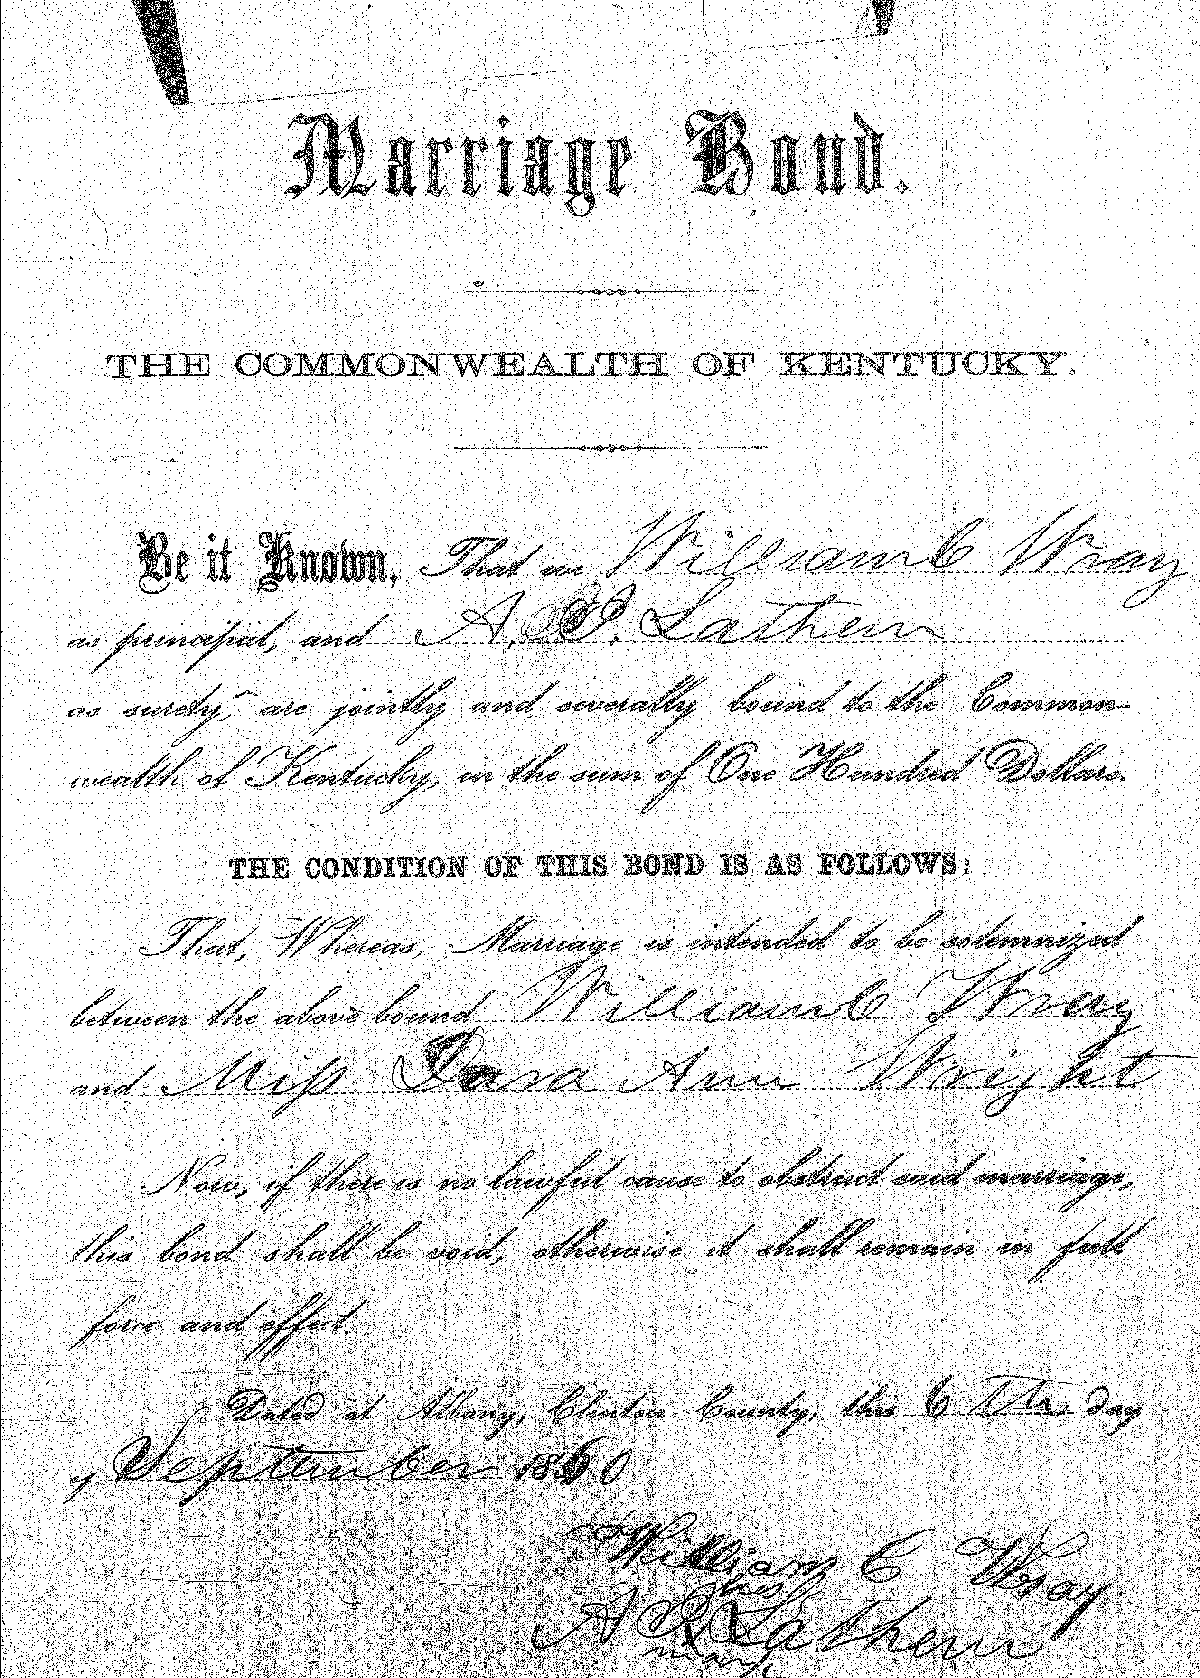 Marriage Bond.
THE COMMONWEALTH OF KENTUCKY.
Be it Known, That we William C Wray
as principal, and A. P. Lathem
as surety, are jointly and severally bound to the Common-
wealth of Kentucky, in the sum of One Hundred Dollars.
THE CONDITION OF THIS BOND IS AS FOLLOWS:
That, Whereas, Marriage is intended to be solemnized
between the above bound William C Wray
and Miss Ann Wright
Now, if there is no lawful cause to obstruct said marriage,
this bond shall be void, otherwise it shall remain in full
force and effect.
Dated at Albany, Clinton County, this 6 Th day
of September 1860
William C Wray
his
A Lathem
mark